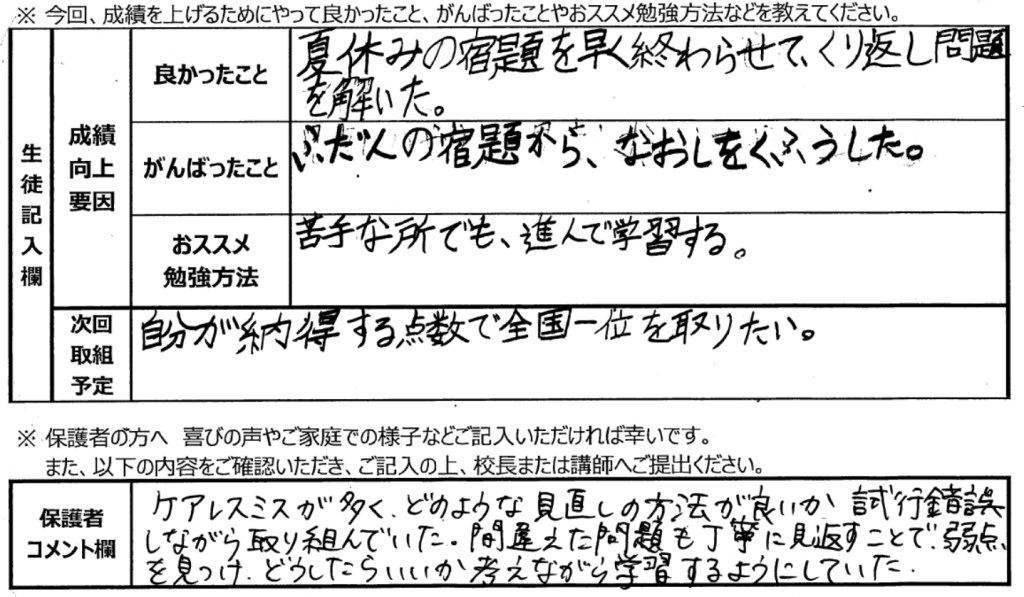 ※ 今回、成績を上げるためにやって良かったこと、がんばったことやおススメ勉強方法などを教えてください。
生徒記入欄
成績
向上
要因
良かったこと
夏休みの宿題を早く終わらせて、くり返し問題
を解いた。
がんばったこと
ふだんの宿題から、なおしをくふうした。
おススメ
勉強方法
苦手な所でも、進んで学習する。
次回
取組
予定
自分が納得する点数で全国一位を取りたい。
※ 保護者の方へ 喜びの声やご家庭での様子などご記入いただければ幸いです。
また、以下の内容をご確認いただき、ご記入の上、校長または講師へご提出ください。
保護者
コメント欄
ケアレスミスが多く、どのような見直しの方法が良いか 試行錯誤
しながら取り組んでいた。間違えた問題も丁寧に見返すことで、弱点
を見つけ、どうしたらいいか考えながら学習するようにしていた.